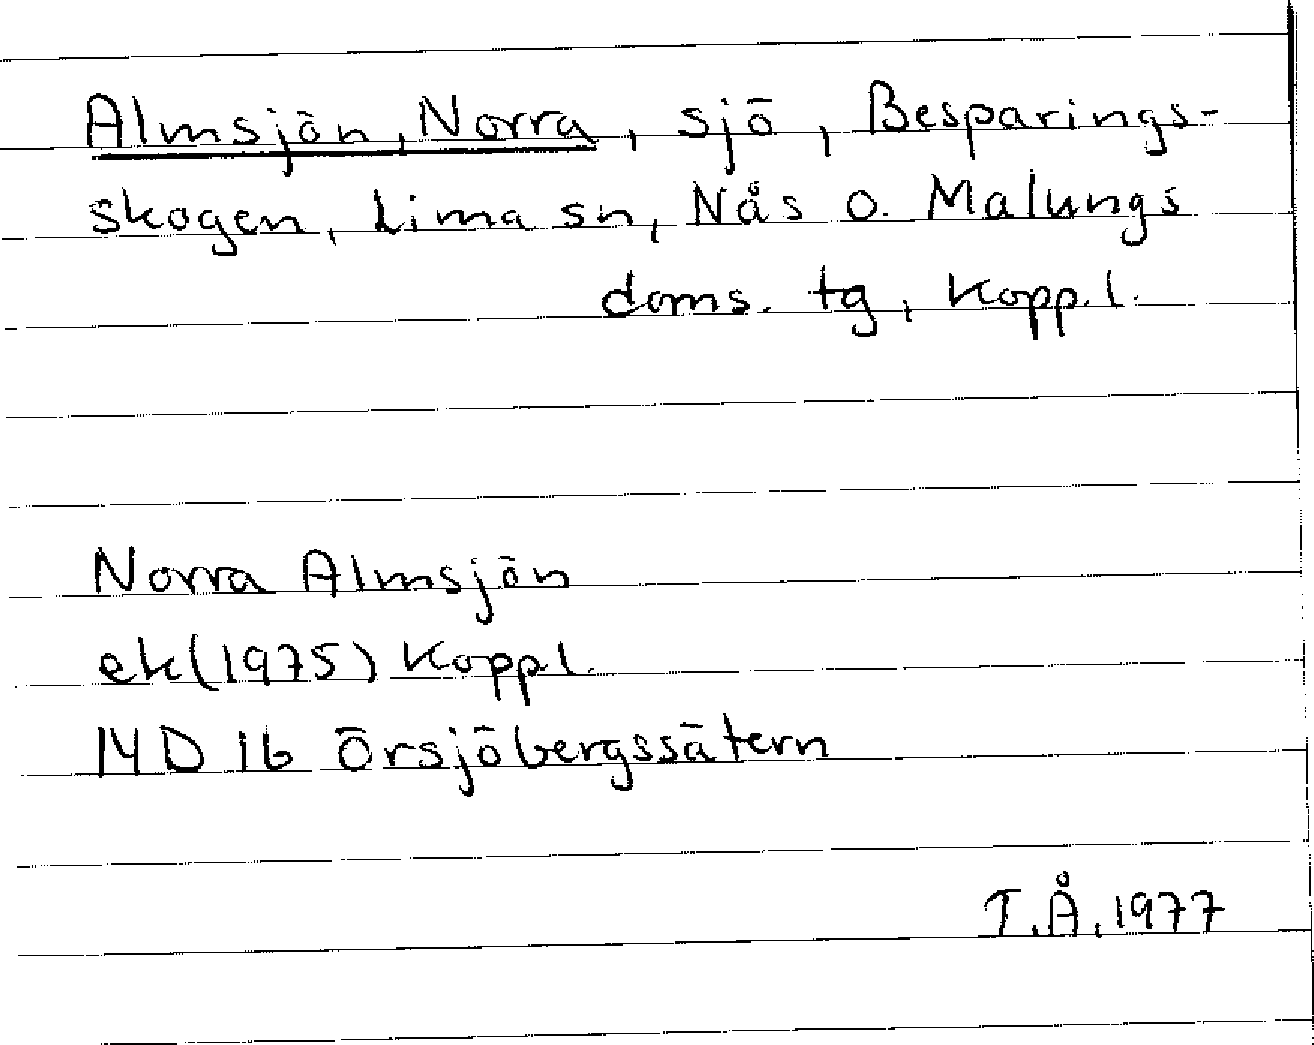 Almsjön, Norra, sjö, Besparings-
skogen, Lima sn, Nås o. Malungs
doms. tg, Kopp.l.
Norra Almsjön
ek(1975) Koppl.
14 D 1b Örsjöbergssätern
T.Å.1977